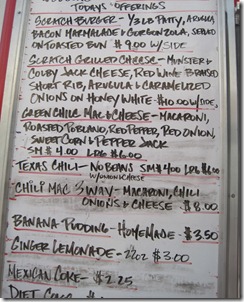 TODAYS OFFERINGS
SCRATCH BURGER - 1/3 LB PATTY, ARUGULA
BACON MARMALADE & GORGONZOLA, SERVED
ON TOASTED BUN $9.00 W/SIDE
SCRATCH GRILLED CHEESE - MUNSTER &
COLBY JACK CHEESE, RED WINE BRAISED
SHORT RIB, ARUGULA & CARAMELIZED
ONIONS ON HONEY WHITE $10.00 W/SIDE
GREEN CHILE MAC & CHEESE - MACARONI,
ROASTED POBLANO, RED PEPPER, RED ONION,
SWEET CORN & PEPPER JACK
SM $4.00 LRG $6.00
TEXAS CHILI - NO BEANS SM $4.00 LRG $6.00
W/ONION & CHEESE
CHILI MAC 3 WAY - MACARONI, CHILI
ONIONS & CHEESE $8.00
BANANA PUDDING - HOMEMADE - $3.50
GINGER LEMONADE - 22OZ $3.00
MEXICAN COKE - $2.25
DIET